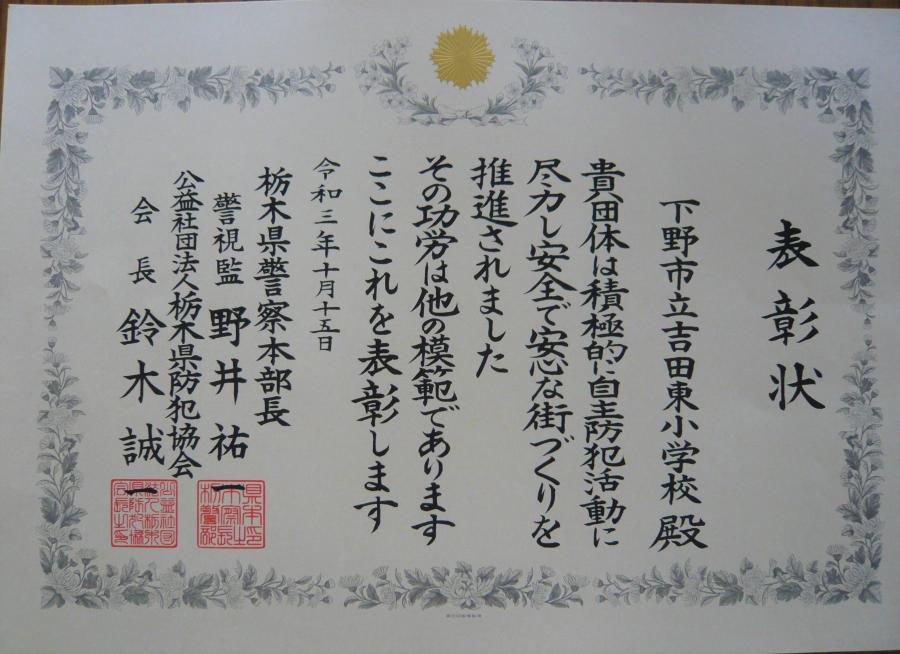 表彰状
下野市立吉田東小学校 殿
貴団体は積極的に自主防犯活動に
尽力し安全で安心な街づくりを
推進されました
その功労は他の模範であります
ここにこれを表彰します
令和三年十月十五日
栃木県警察本部長
警視監 野井祐一
公益社団法人栃木県防犯協会
会長 鈴木誠一